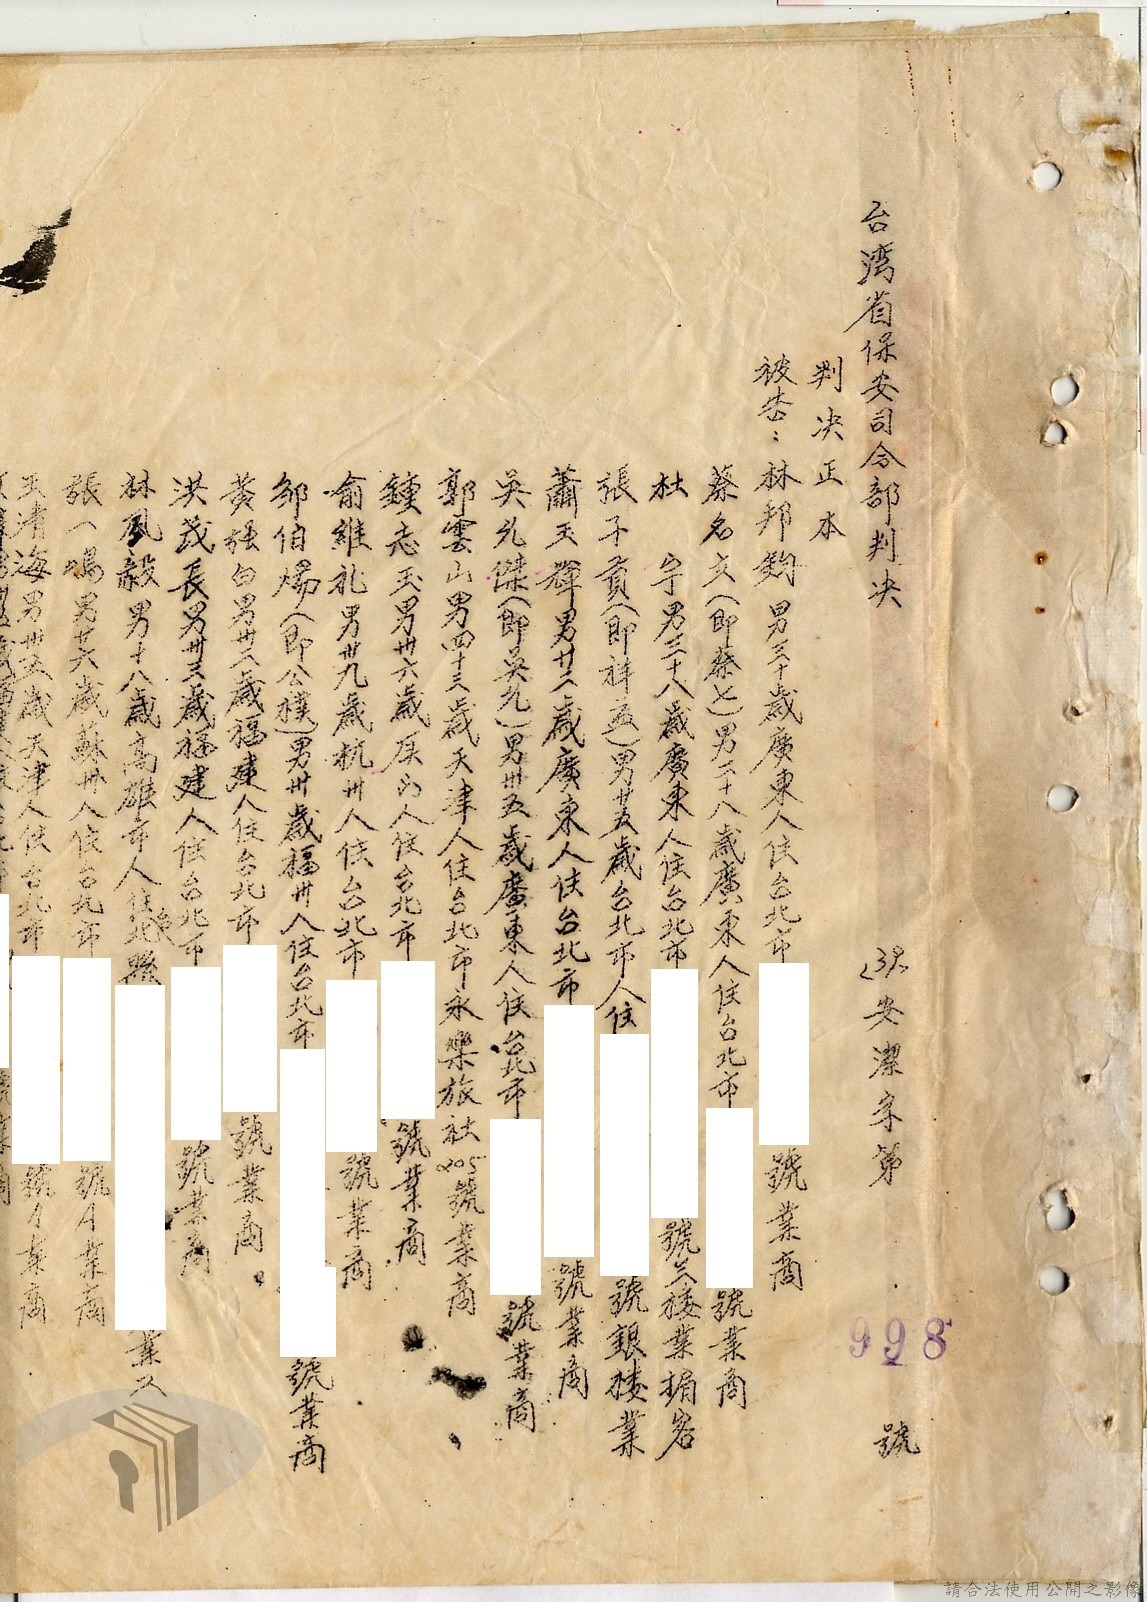 台湾省保安司令部判决
安潔字第 998 號
判决正本
被告：林邦鈞 男三十歲廣東人住台北市 號業商
蔡名文(即蔡七)男二十八歲廣東人住台北市 號業商
杜 宇男三十八歲廣東人住台北市 號三楼業掮客
張子貢(即祥 )男廿五歲台北市人住 號銀楼業
蕭玉輝男廿二歲廣東人住台北市 號業商
吳允傑(即吳九)男卅五歲廣東人住台北市 號業商
郭雲山男四十三歲天津人住台北市永樂旅社205號業商
鍾志玉男卅六歲 人住台北市 號業商
俞維礼男卅九歲杭州人住台北市 號業商
鄒伯煬(即公樸)男卅歲福州人住台北市 號業商
黃強白男卅二歲福建人住台北市 號業商
洪茂長男卅三歲福建人住台北市 號業商
林風毅男十八歲高雄市人住台北縣 業工
張一鳴男廿六歲蘇州人住台北市 號4業商
王清海男卅五歲天津人住台北市 號4業商
請合法使用公開之影像